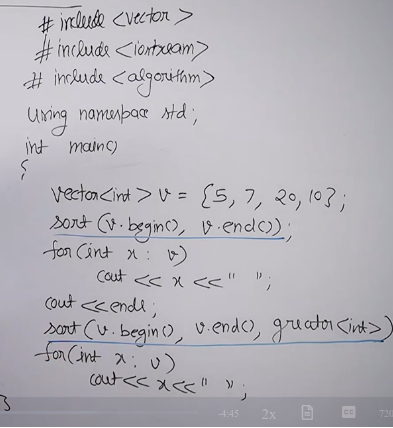 # include <vector>
# include <iostream>
# include <algorithm>
using namespace std;
int main()
{
vector<int> v = {5, 7, 20, 10};
sort (v.begin(), v.end());
for(int x : v)
cout << x << " ";
cout << endl;
sort (v.begin(), v.end(), greator<int>)
for(int x : v)
cout << x << " ";
}
-4:43 2x CC 720